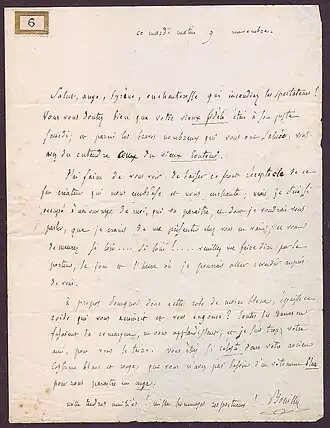 6
ce mardi matin 9 novembre.
Salut, ange, Syrène, enchanteresse qui incendiez les spectateurs !
Vous vous doutez bien que votre vieux fidèle était à son poste
jeudi ; et parmi les bravos nombreux qui vous ont saluée, vous
avez dû entendre ceux du vieux conteur.
J'ai faim de vous voir, de baiser ce front réceptacle de ce
feu créateur qui nous embrase et nous enchante ; mais je suis si
occupé d'un ouvrage de moi, qui va paraître, et dont je voudrais vous
parler, que je crains de me présenter chez vous en vain ; et vous
demeurez si loin .... si loin ! .... veuillez me faire dire par le
porteur, le jour et l'heure où je pourrai aller causer auprès
de vous.
à propos, pourquoi donc cette robe de moire bleue, épaisse
roide qui vous et vous engonce ? Toutes les dames en
faisaient la remarque, en vous applaudissant, et je suis trop votre
ami, pour vous le taire. Vous étiez si dans votre ancien
costume blanc et rouge, que vous n'avez pas besoin d'un vêtement bleu
pour nous paraître un ange.
mille tendres amitiés ! mille hommages respectueux ! Bouilly